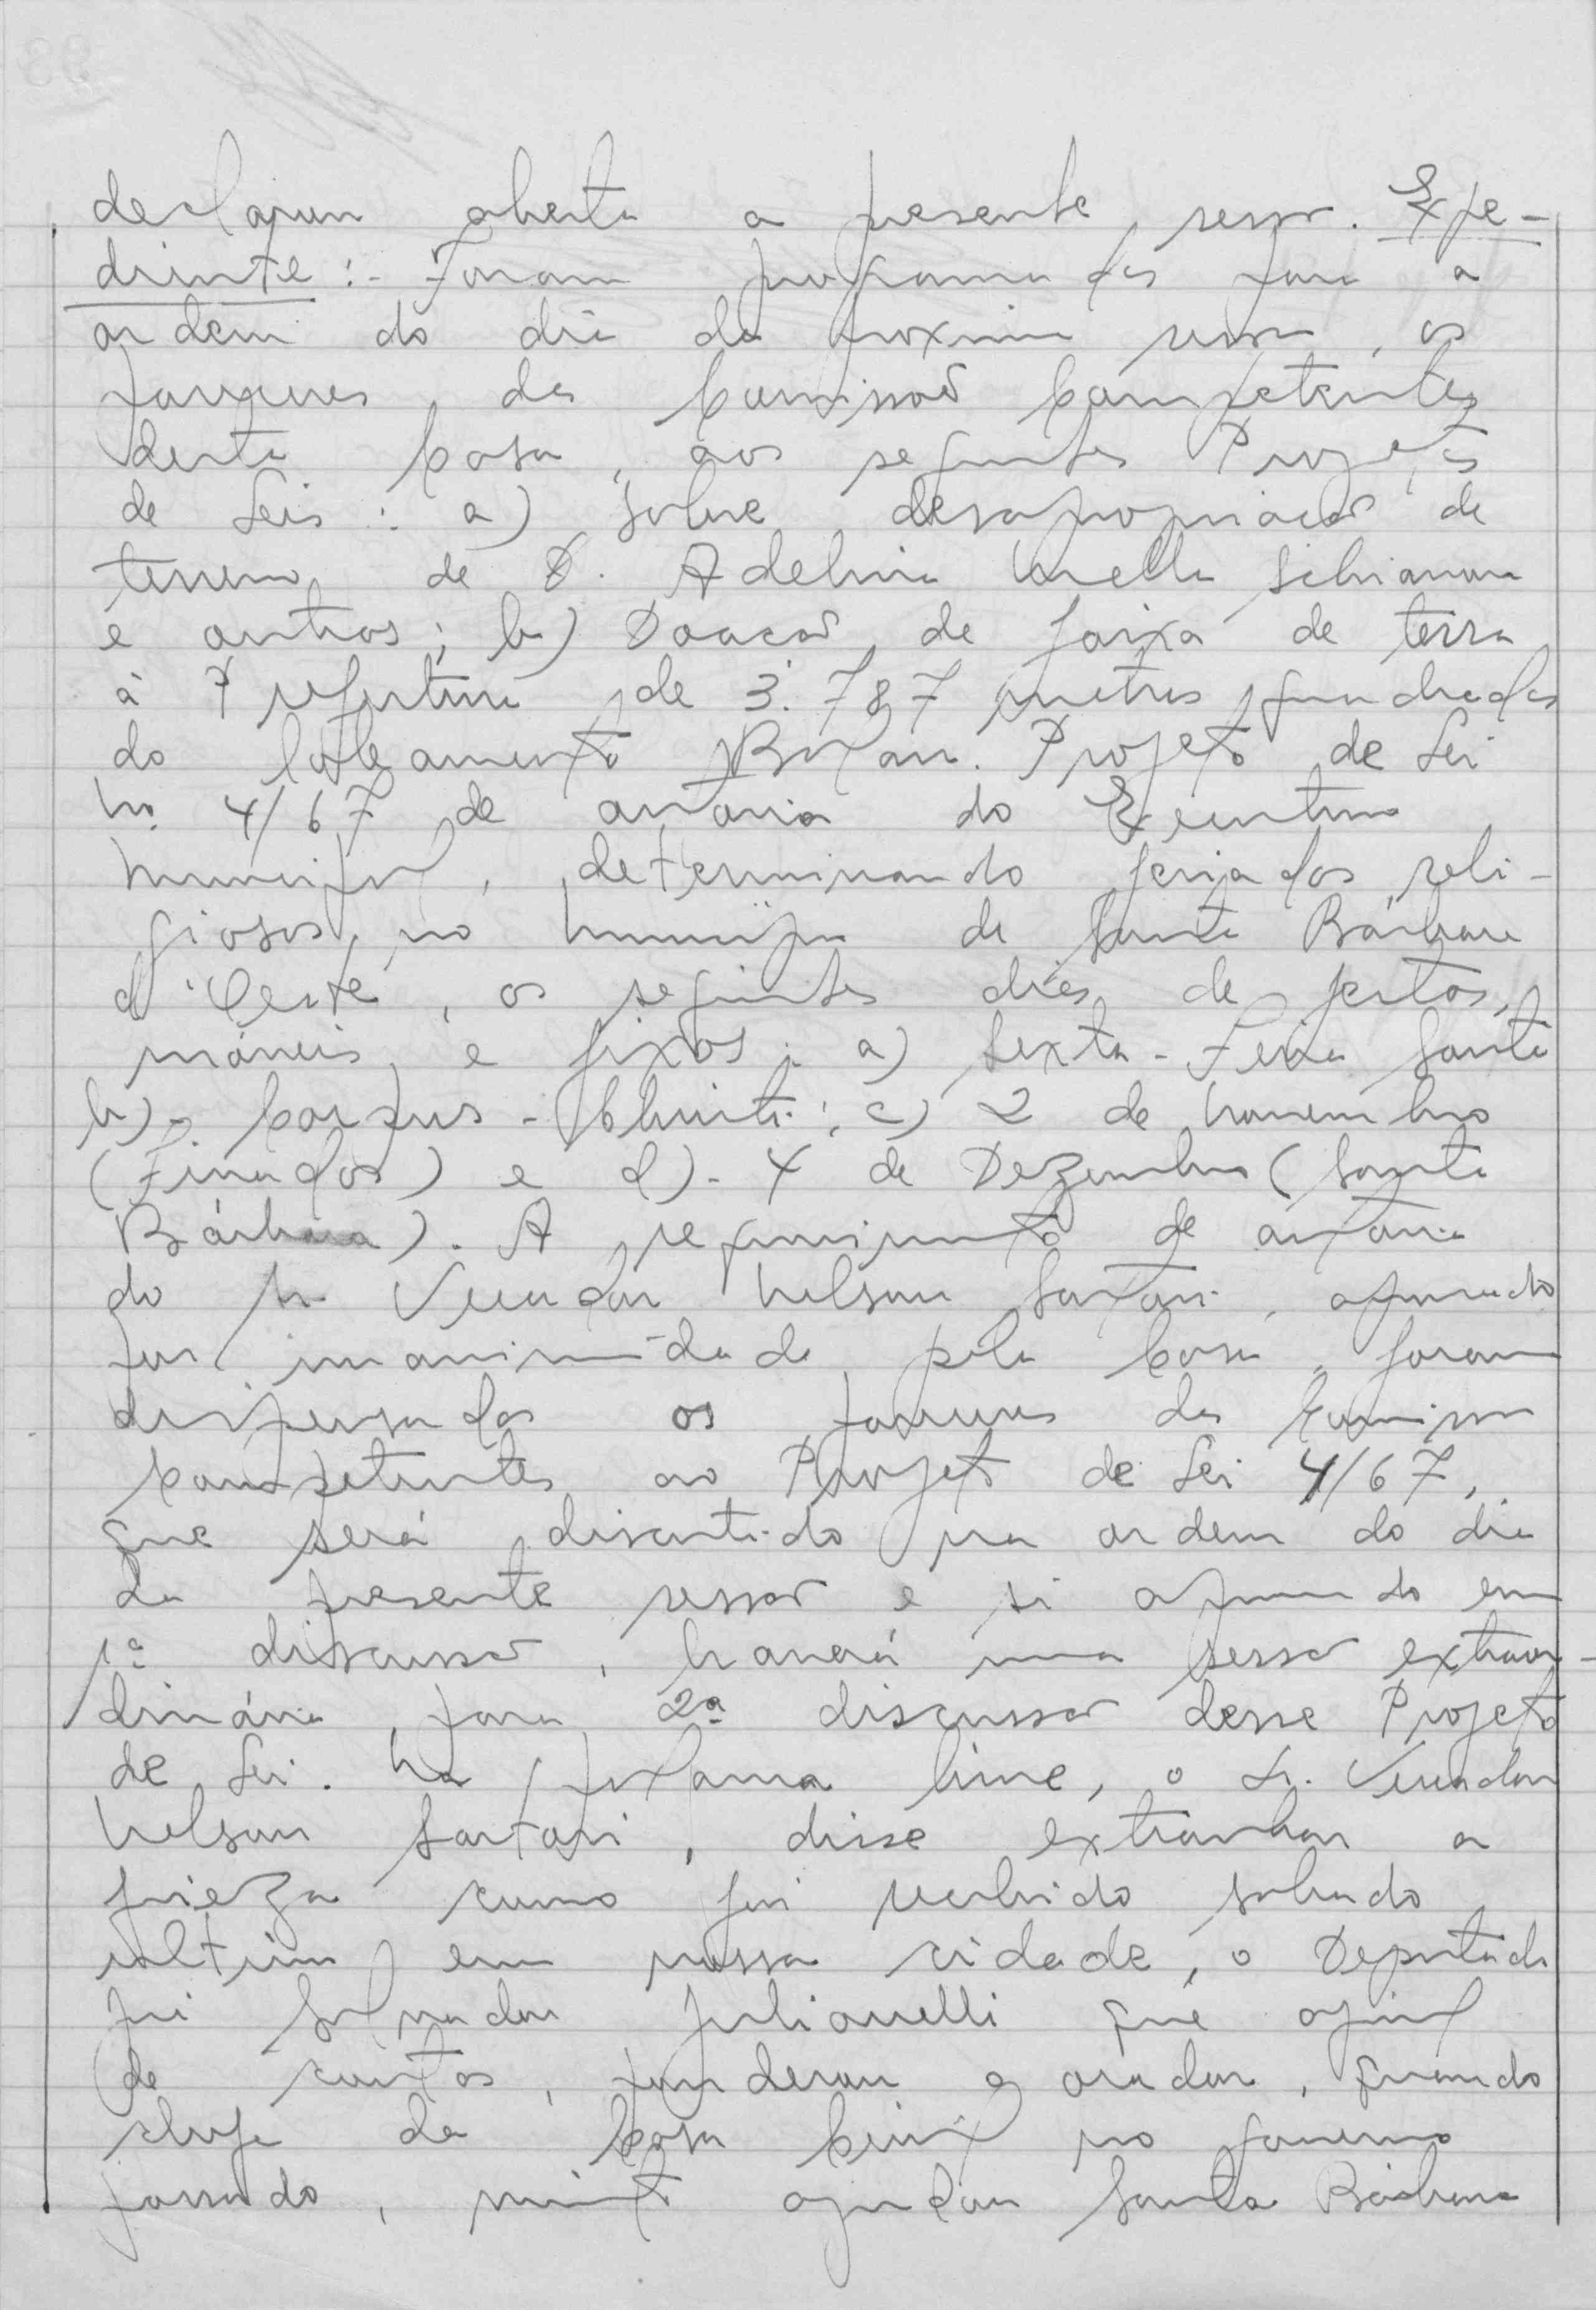 declaram aberta a presente sessão. Expe-
diente :- Foram programados para a
ordem do dia da proxima sessão, os
pareceres da Comissão Competentes
desta Casa, aos seguintes Projetos
de Leis : a) sobre desapropriação de
terreno de D. Adelina
e outros; b) Doação de faixa de terra
à Prefeitura de 3.787 metros quadrados
do loteamento. Projeto de Lei
no. 4/67 de autoria do Executivo
Municipal, determinando feriados reli-
giosos, no Municipio de Santa Bárbara
d'Oeste, os seguintes dias de festas,
móveis e fixos : a) Sexta-Feira Santa
b)-. Corpus-Christi; c) 2 de Novembro
(Finados) e d)- 4 de Dezembro (Santa
Bárbara). A requerimento de autoria
do sr. Vereador Nelson Sartori, aprovado
por unanimidade pela Casa, foram
dispensados os pareceres da Comissão
Competentes ao Projeto de Lei 4/67,
que será discutido na ordem do dia
da presente sessão e si aprovado em
1ª discussão, haverá uma sessão extraor-
dinária, para 2ª discussão desse Projeto
de Lei. Na palavra livre, o sr. Vereador
Nelson Sartori, disse extranhar a
frieza como foi recebido sabado
ultimo em nossa cidade, o Deputado
Salvador Julianelli que afinal
de contas, ponderou o orador, quando
chefe da Casa Civil no governo
passado, muito ajudou Santa Bárbara